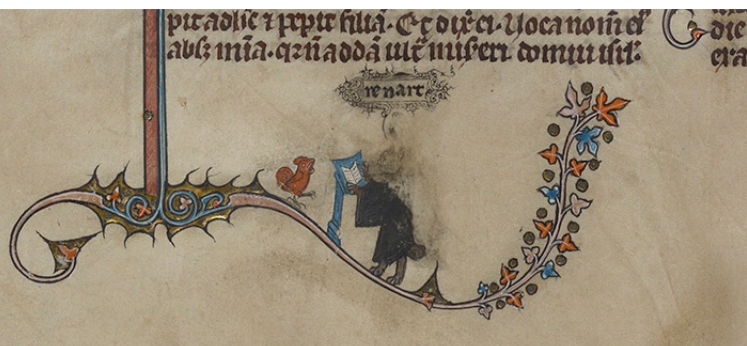 pit adhc ⁊ pepit filiã. Et dix̃ ei. Uoca nom̃ ei
absꝫ mĩa. qꝛ ñ addã ult̃ miseri domui isrł:
renart
die
era